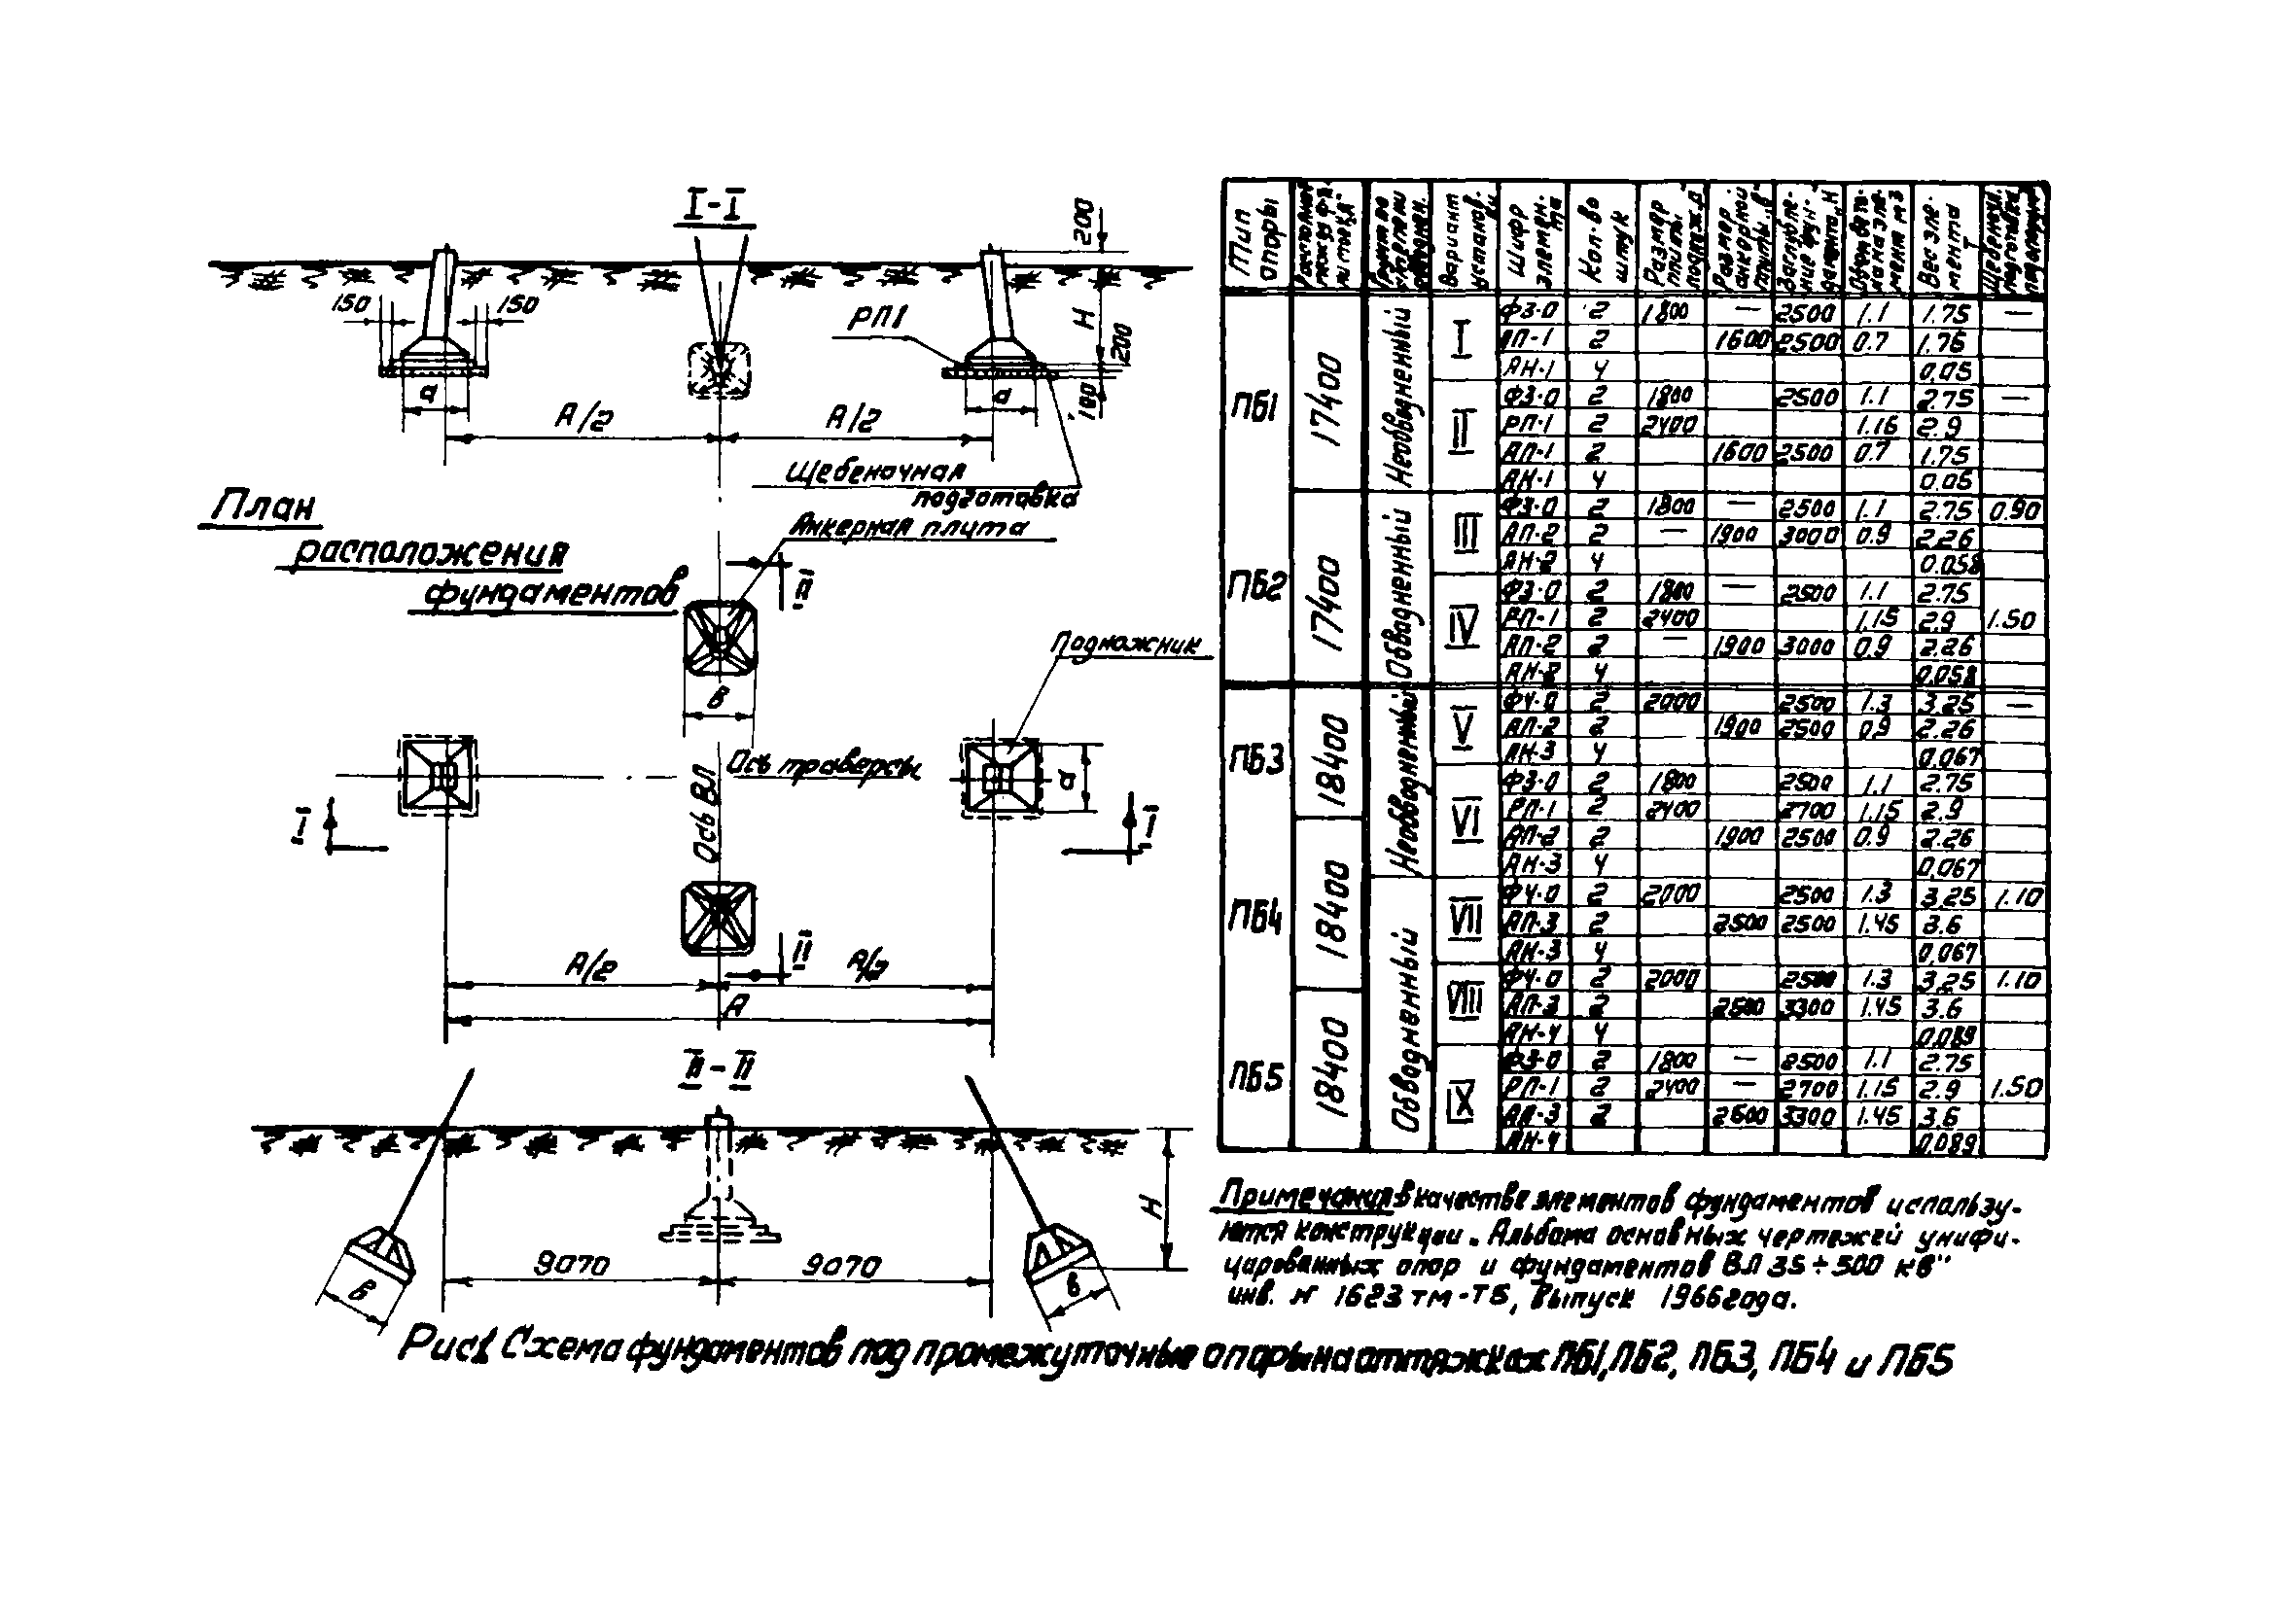 I-I
200
150
150
РП1
H
200
100
а
а
А/2
А/2
Щебеночная
подготовка
План
расположения
фундаментов
Анкерная плита
II
Подножник
В
Ось траверсы
Ось ВЛ
а
I
I
II
А/2
А/2
А
II-II
H
9070
9070
В
в
Тип опоры
Вариант установ.
Шифр элемен-та
Кол-во штук
Размер плиты поднож. а
Размер анкорной плиты „в"
Заглубле-ние фун-дамента „Н
Вес эле-мента Т
ПБ1 17400 Необводненный
I
ФЗ-0 2 1800 — 2500 1.1 1.75 —
АП-1 2 1600 2500 0.7 1.76
АН-1 4 0.05
II
ФЗ-0 2 1800 2500 1.1 2.75 —
РП-1 2 2400 1.16 2.9
АП-1 2 1600 2500 0.7 1.75
АН-1 4 0.05
ПБ2 17400 Обводненный
III
ФЗ-0 2 1800 — 2500 1.1 2.75 0.90
АП-2 2 — 1900 3000 0.9 2.26
АН-2 4 0.058
IV
ФЗ-0 2 1800 — 2500 1.1 2.75
РП-1 2 2400 1.15 2.9 1.50
АП-2 2 — 1900 3000 0.9 2.26
АН-2 4 0.058
ПБ3 18400 Необводненный
V
Ф4-0 2 2000 2500 1.3 3.25 —
АП-2 2 1900 2500 0.9 2.26
АН-3 4 0.067
VI
ФЗ-0 2 1800 2500 1.1 2.75
РП-1 2 2400 2700 1.15 2.9
АП-2 2 1900 2500 0.9 2.26
АН-3 4 0.067
ПБ4 18400 Обводненный
VII
Ф4-0 2 2000 2500 1.3 3.25 1.10
АП-3 2 2500 2500 1.45 3.6
АН-3 4 0.067
VIII
Ф4-0 2 2000 2500 1.3 3.25 1.10
АП-3 2 2500 3300 1.45 3.6
АН-4 4 0.089
ПБ5 18400
IX
ФЗ-0 2 1800 — 2500 1.1 2.75
РП-1 2 2400 — 2700 1.15 2.9 1.50
АП-3 2 2600 3300 1.45 3.6
АН-4 0.089
Примечания: В качестве элементов фундаментов использу-
ются конструкции „Альбома основных чертежей унифи-
цированных опор и фундаментов ВЛ 35÷500 кв"
инв. № 1623 тм-Т5, Выпуск 1966года.
Рис1 Схема фундаментов под промежуточные опоры на оттяжках ПБ1, ПБ2, ПБ3, ПБ4 и ПБ5